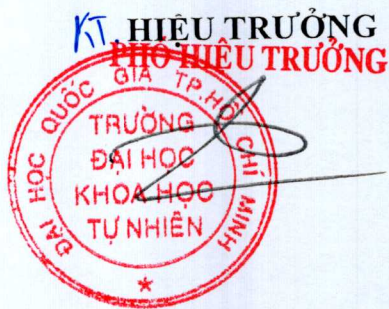 KT. HIỆU TRƯỞNG
PHÓ HIỆU TRƯỞNG
ĐẠI HỌC QUỐC GIA TP.HỒ CHÍ MINH
TRƯỜNG
ĐẠI HỌC
KHOA HỌC
TỰ NHIÊN